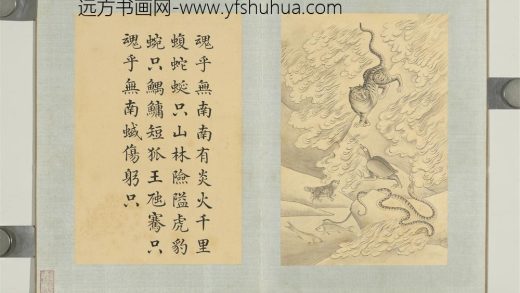 远方书画网-www.yfshuhua.com
魂乎無南南有炎火千里
蝮蛇蜒只山林險隘虎豹
蜿只鰅鱅短狐王虺騫只
魂乎無南蜮傷躬只